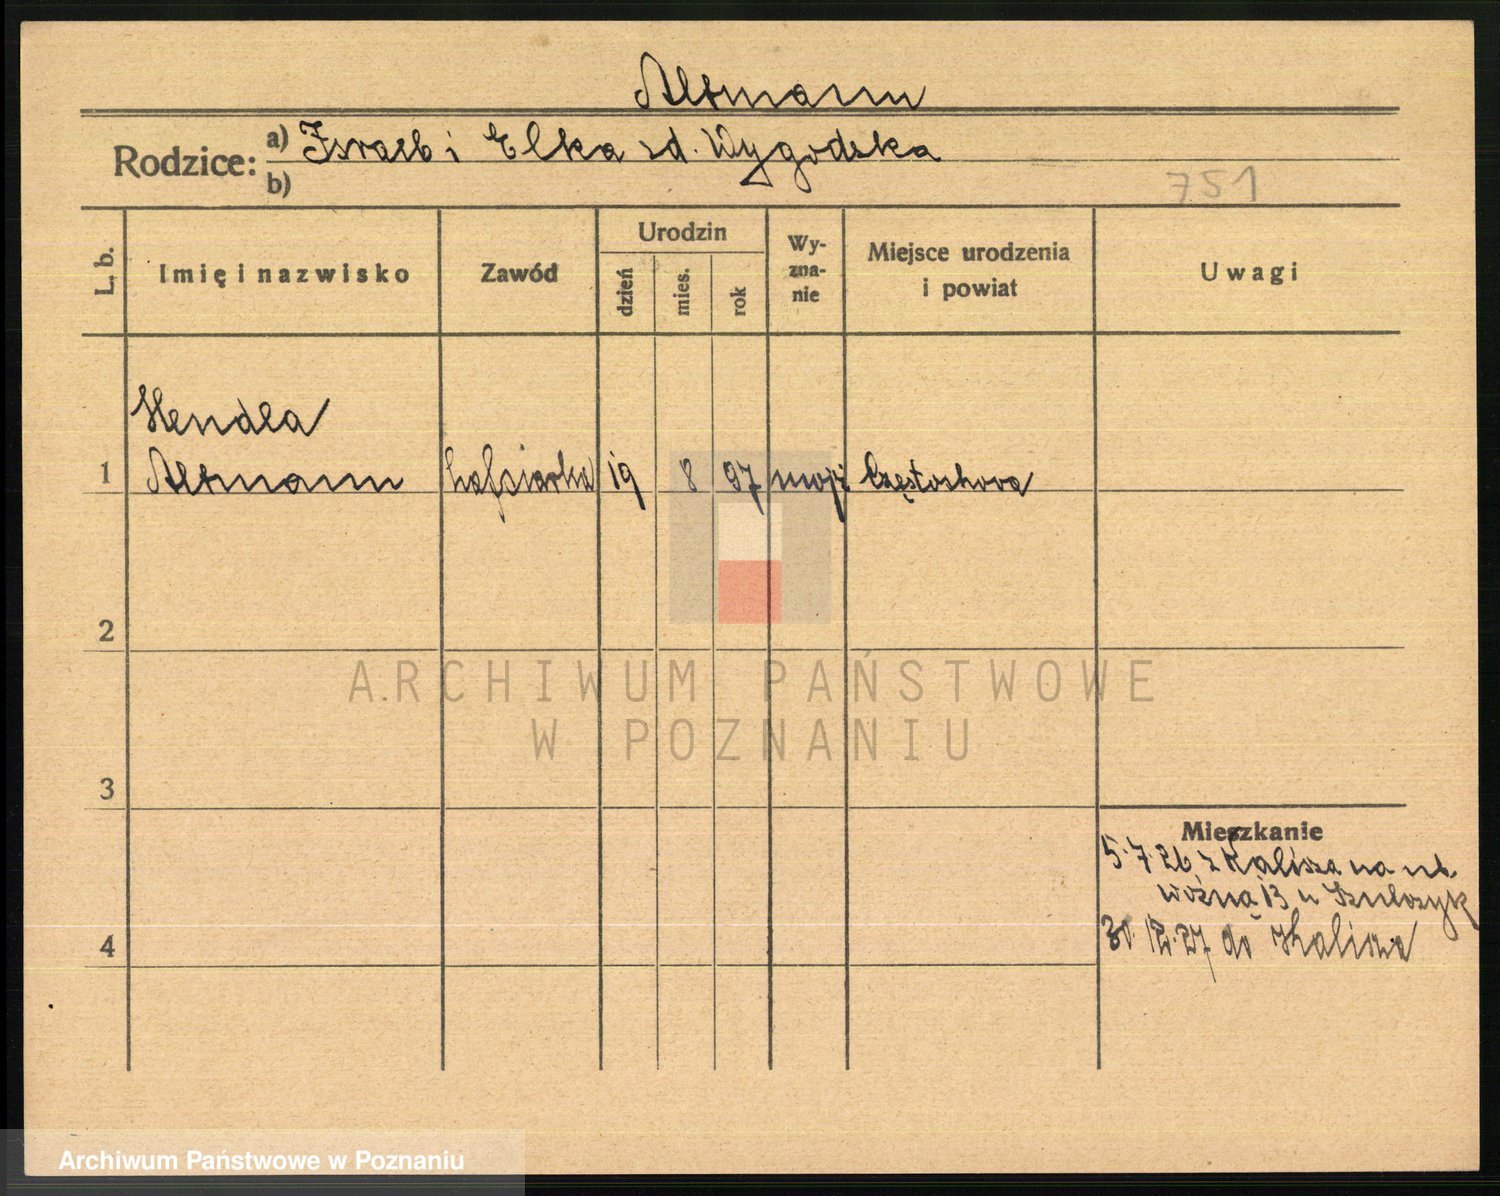 Altmann
Rodzice: a) Israel i Elka zd. Wygodska
b)
751
L. b.
Imię i nazwisko
Zawód
Urodzin
dzień
mies.
rok
Wy-
zna-
nie
Miejsce urodzenia
i powiat
Uwagi
Hendla
1 Altmann hafciarka 19 8 97 mojż Częstochowa
2
ARCHIWUM PAŃSTWOWE
W POZNANIU
3
Mieszkanie
5.7 26 z Kalisza na ul.
woźna 13 u Szulczyk
4
30.12.27 do Kalisza
Archiwum Państwowe w Poznaniu